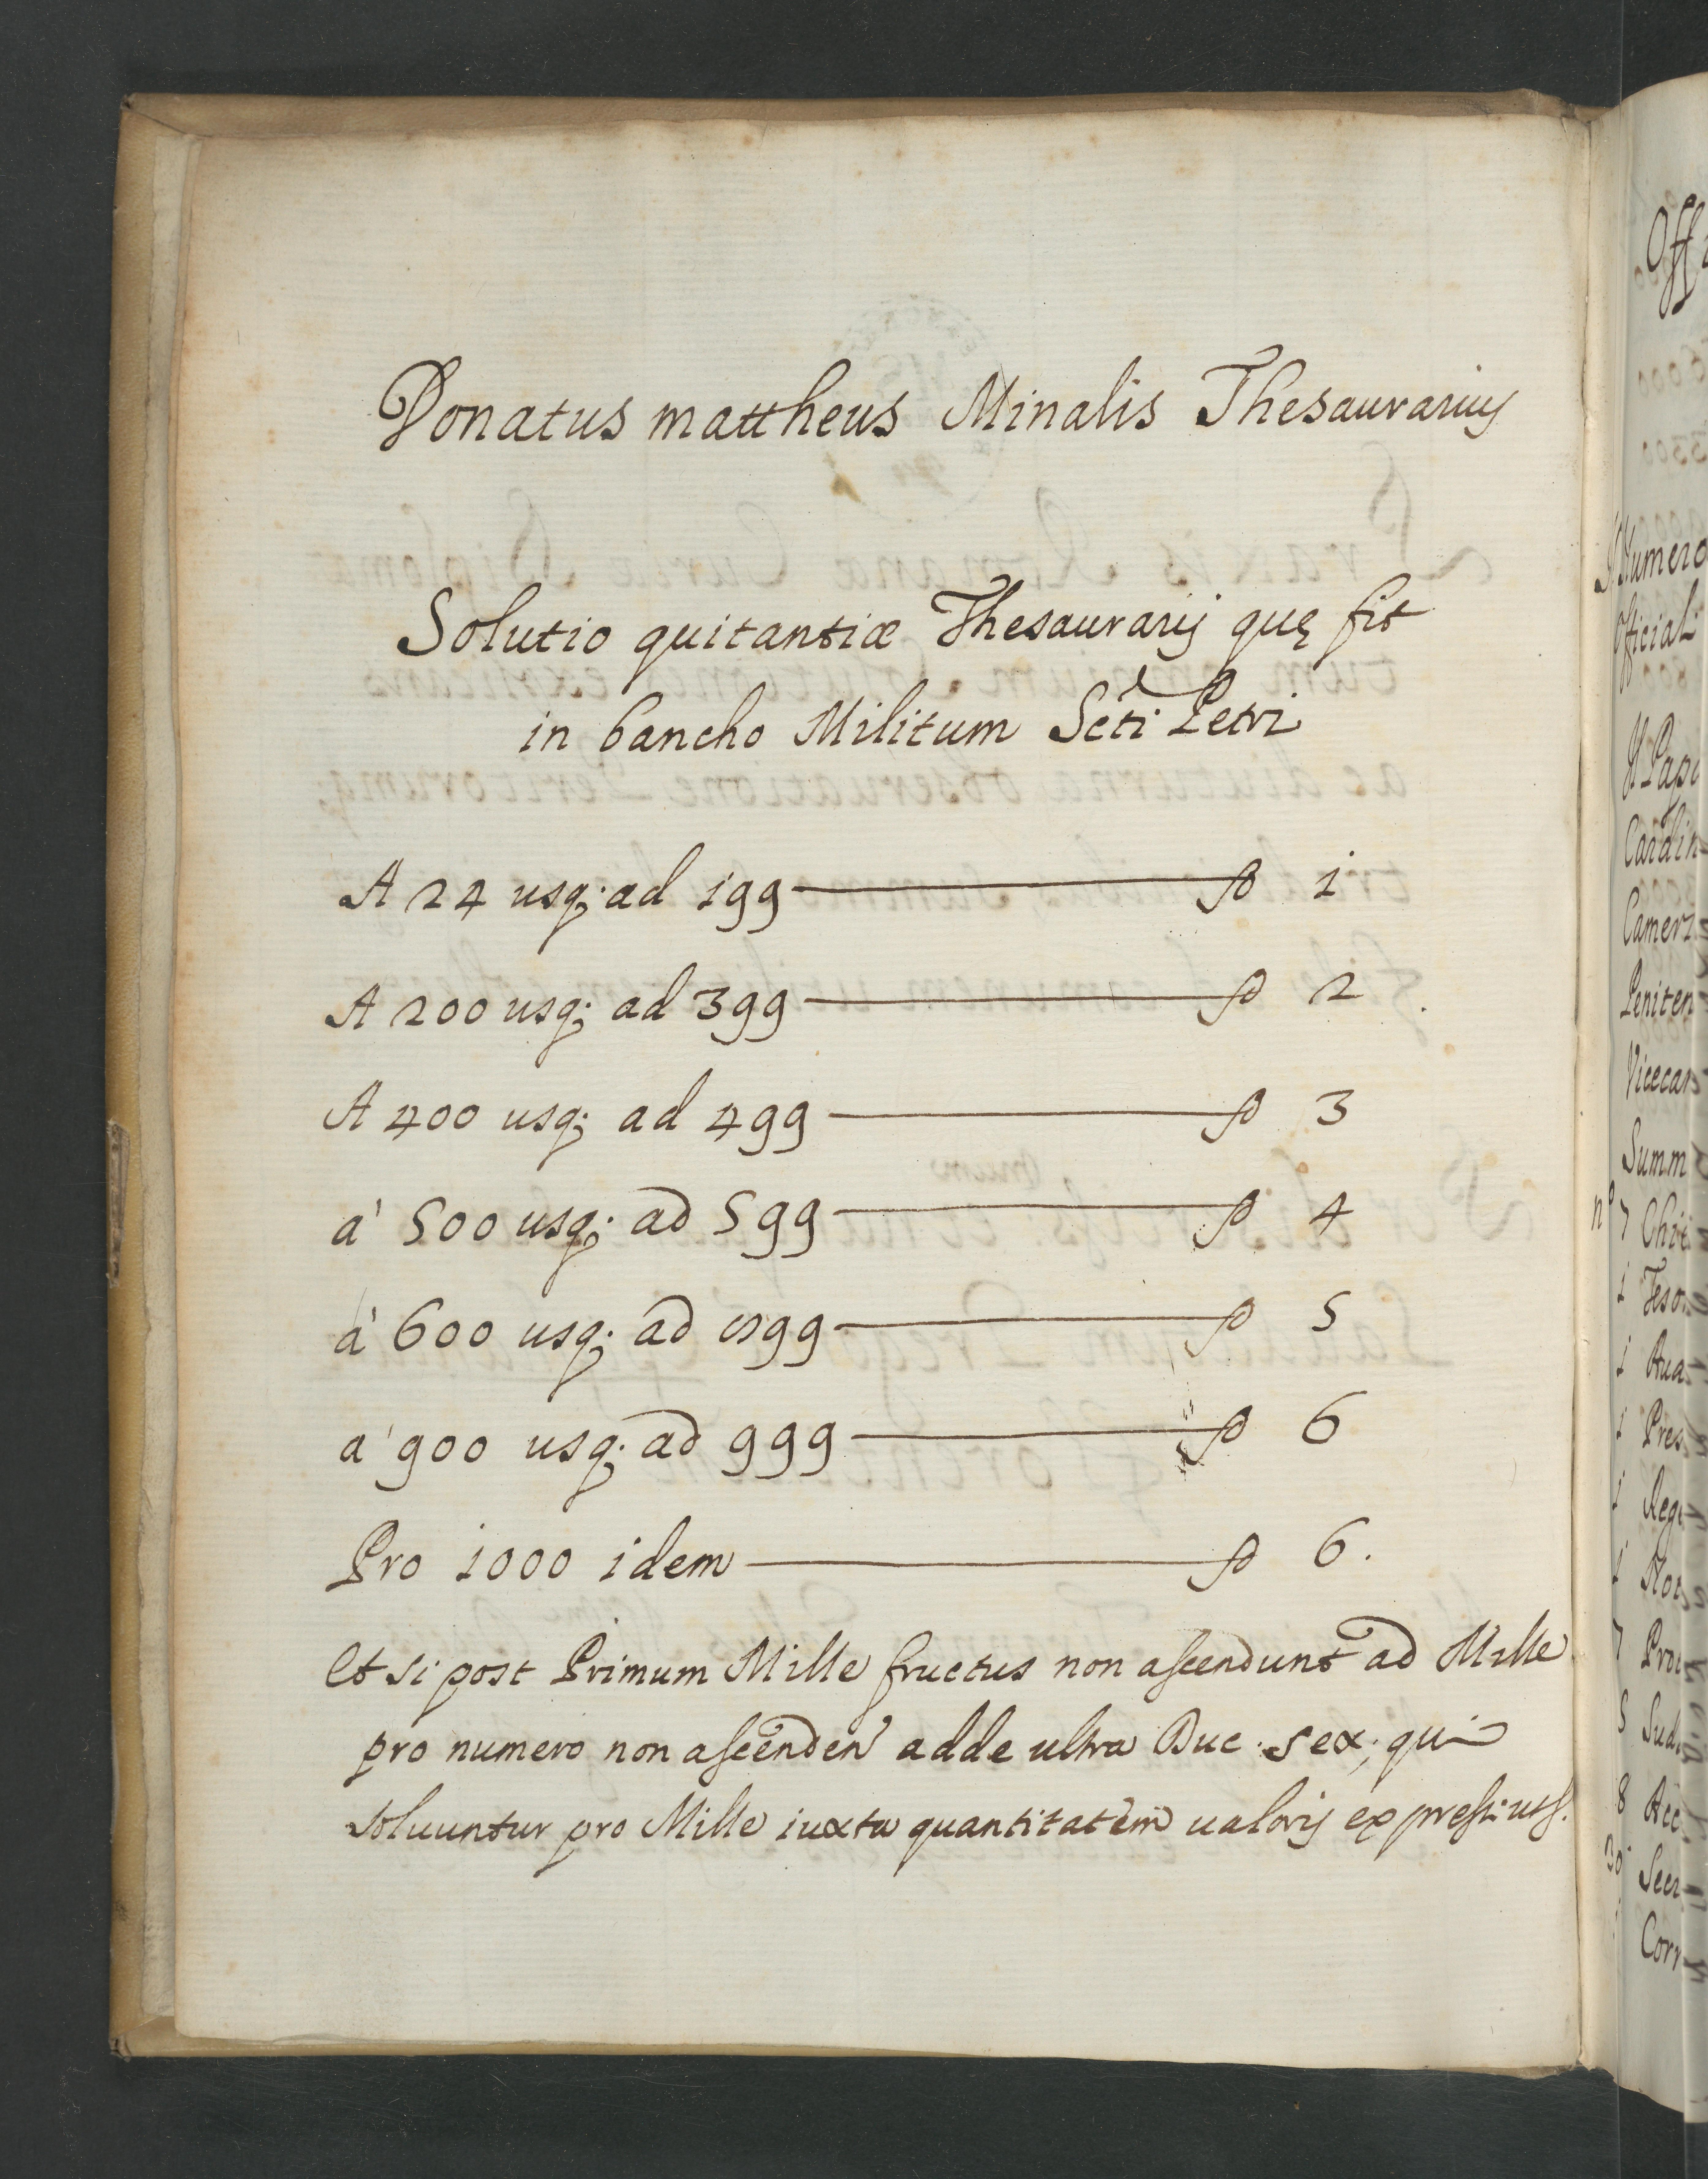 Donatus mattheus Minalis Thesaurarius
Solutio quitantiæ Thesaurarij quę fit
in bancho Militum Scti Petri
A 24 usq; ad 199 — 1
A 200 usq; ad 399 — 2
A 400 usq; ad 499 — 3
à 500 usq; ad 599 — 4
à 600 usq; ad 899 — 5
a' 900 usq; ad 999 — 6
Pro 1000 idem — 6.
Et si post Primum Mille fructus non ascendunt ad Mille
pro numero non ascenden adde ultra Duc. sex, qui
soluuntur pro Mille iuxta quantitatem ualoris
Off
Numero
Officiali
Il Papa
Cardin
Camer
Peniten
Vicecan
Summ
n° 7 Chi
1 Teso
1 Aud
1 Pres
1 Reg
1 Not
7 Pro
5 Sud
8 Acc
30 Secr
Corr